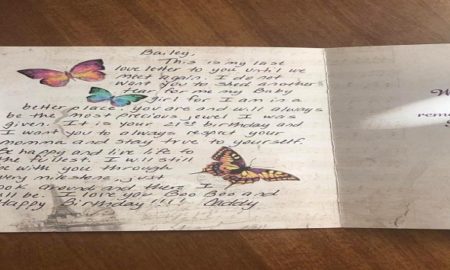 Bailey,
This is my last
love letter to you until we
meet again. I do not
want you to shed another
tear for me my Baby
girl for I am in a
better place. You are and will always
be the most precious jewel I was
given. It is your 21st birthday and
I want you to always respect your
momma and stay true to yourself.
Be happy and live life to
the fullest. I will still
be with you through
every milestone, just
look around and there I
will be. I love you Boo Boo and
Happy Birthday!!!! Daddy
W
reme